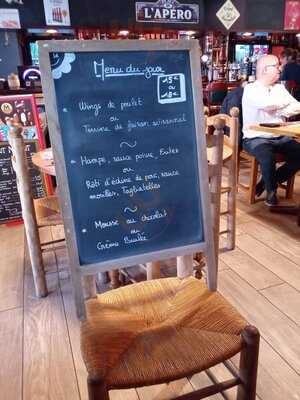 L'APÉRO
Menu du jour
15€
ou
18€
* Wings de poulet
ou
Terrine de faisan artisanal
~
* Hampe, sauce poivre, frites
ou
Rôti d'échine de porc, sauce
morilles, Tagliatelles
~
* Mousse au chocolat
ou
Crème Brulée